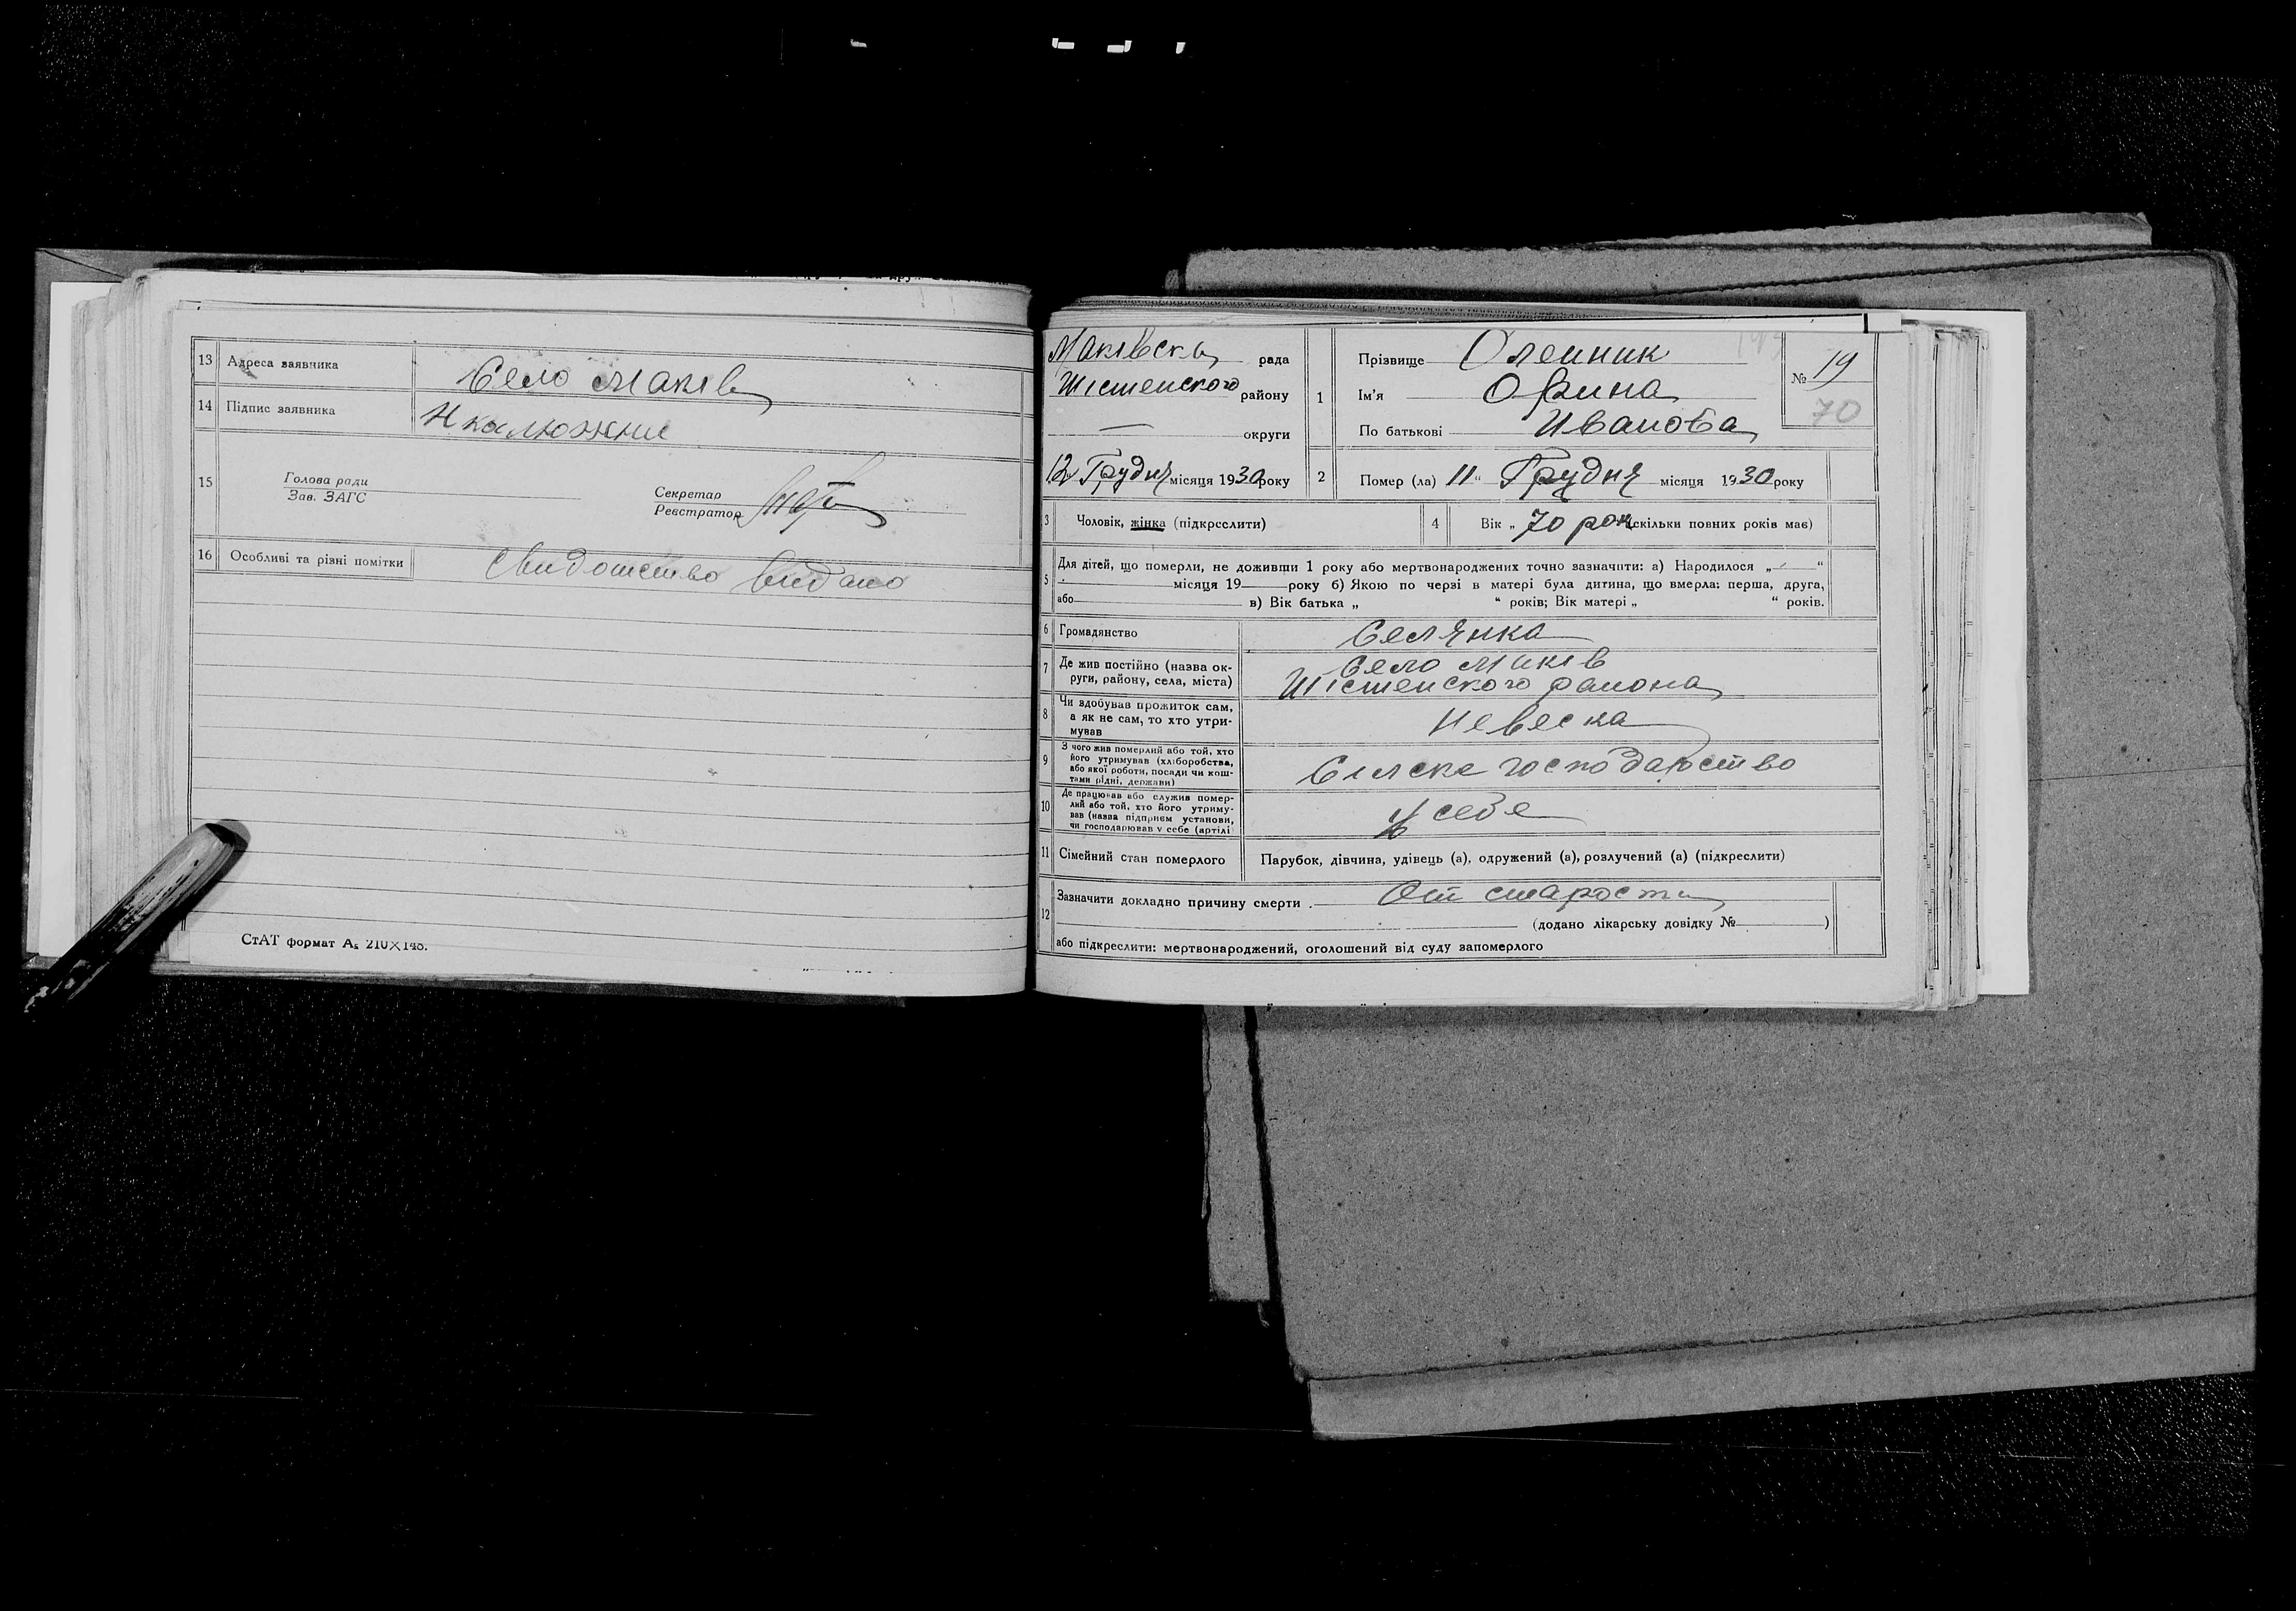 13 Адреса заявника Село Маків
14 Підпис заявника Н калюжние
15 Голова ради
Зав. ЗАГС
Секретар
Реєстратор
16 Особливі та різні помітки Свидотство видано
СтАТ формат А₅ 210×148.
Маківска рада
Шістенского району
— округи
12 Грудня місяця 1930 року
1 Прізвище Олейник
Ім'я Орина
По батькові Иванова
№ 19
70
2 Помер (ла) 11 „ Грудня місяця 1930 року
3 Чоловік, жінка (підкреслити)
4 Вік „ 70 рок скільки повних років має)
5 Для дітей, що померли, не доживши 1 року або мертвонароджених точно зазначити: а) Народилося „ “
місяця 19 року б) Якою по черзі в матері була дитина, що вмерла: перша, друга,
або в) Вік батька „ “ років; Вік матері „ “ років.
6 Громадянство Селянка
7 Де жив постійно (назва округи, району, села, міста) Село Маків
Шістенского района
8 Чи здобував прожиток сам, а як не сам, то хто утримував Невеска
9 З чого жив померлий або той, хто його утримував (хліборобства, або якої роботи, посади чи коштами рідні, держави) Силске господарство
10 Де працював або служив померлий або той, хто його утримував (назва підприєм установи, чи господарював у себе (артілі У себе
11 Сімейний стан померлого Парубок, дівчина, удівець (а), одружений (а), розлучений (а) (підкреслити)
12 Зазначити докладно причину смерти . От старости
(додано лікарську довідку № )
або підкреслити: мертвонароджений, оголошений від суду запомерлого